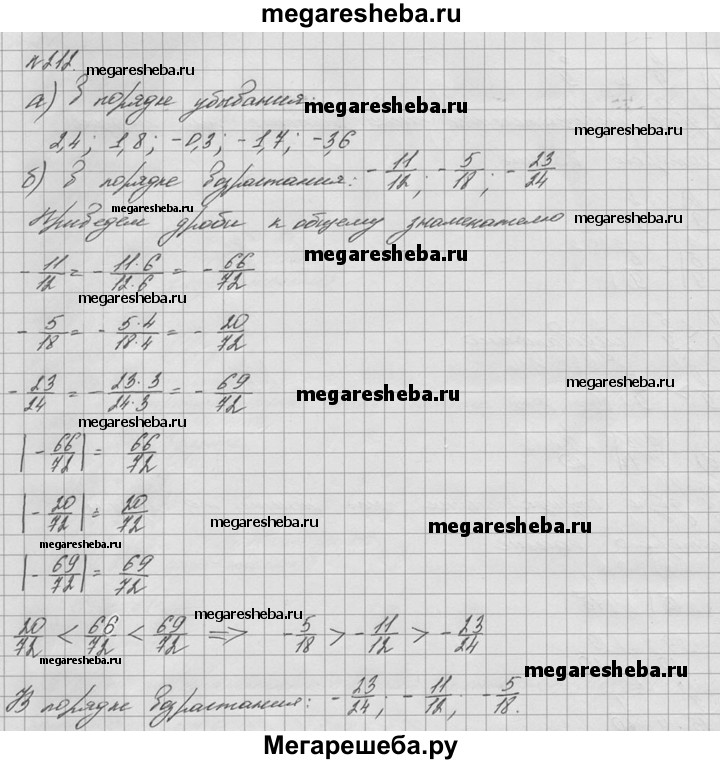 megaresheba.ru
№212. megaresheba.ru
а) В порядке убывания: megaresheba.ru
megaresheba.ru
2,4; 1,8; -0,3; -1,7; -3,6
б) В порядке возрастания: -11/12; -5/18; -23/24
megaresheba.ru
Приведем дроби к общему знаменателю megaresheba.ru
megaresheba.ru
-11/12 = -11·6/12·6 = -66/72
megaresheba.ru
-5/18 = -5·4/18·4 = -20/72
megaresheba.ru
-23/24 = -23·3/24·3 = -69/72 megaresheba.ru
megaresheba.ru
|-66/72| = 66/72
|-20/72| = 20/72 megaresheba.ru megaresheba.ru
megaresheba.ru
|-69/72| = 69/72
megaresheba.ru
20/72 < 66/72 < 69/72 => -5/18 > -11/12 > -23/24
megaresheba.ru megaresheba.ru
В порядке возрастания: -23/24; -11/12; -5/18.
Мегарешеба.ру